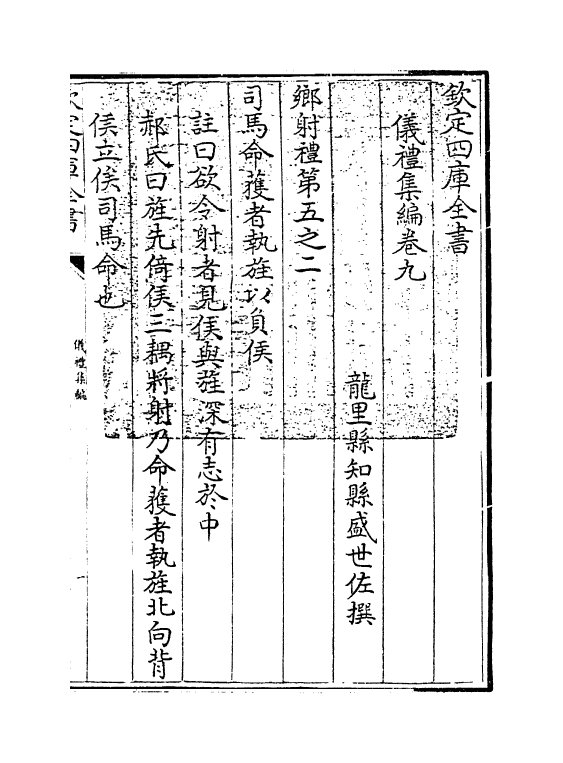 欽定四庫全書
儀禮集編卷九
龍里縣知縣盛世佐撰
鄉射禮第五之二
司馬命獲者執旌以負侯
註曰欲令射者見侯與旌深有志於中
郝氏曰旌先倚侯三耦將射乃命獲者執旌北向背
侯立俟司馬命也
欽定四庫全書
儀禮集編
一